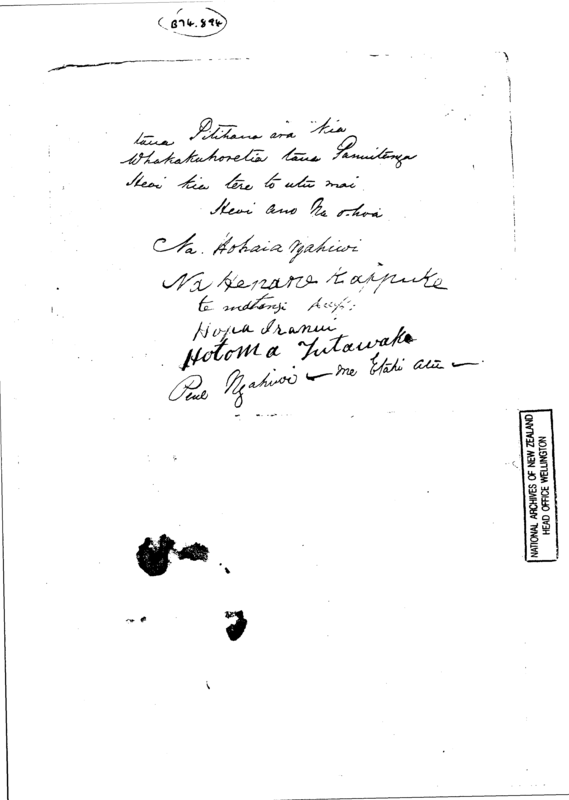 B74.894
taua Pitihana ara kia
Whakakahoretia taua Panuitanga
Heoi kia tere to utu mai.
Heoi ano Na o hoa
Na. Hohaia Ngahiwi
Na Henare Kaipuke
te matengi
Hopa Iranui
Hotoma Tutawake
Peue Ngahiwi — me Etahi atu —
NATIONAL ARCHIVES OF NEW ZEALAND
HEAD OFFICE WELLINGTON